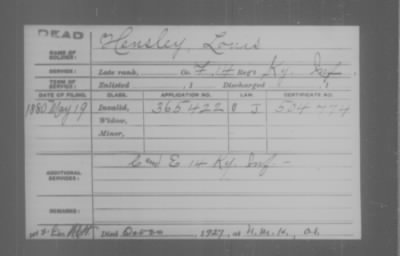 DEAD
NAME OF SOLDIER: Hensley, Louis
SERVICE: Late rank, Co. F, 14 Reg't Ky. Inf.
TERM OF SERVICE: Enlisted , 1 Discharged , 1
DATE OF FILING. CLASS. APPLICATION NO. LAW. CERTIFICATE NO.
1880 May 19 Invalid, 365422 J 534774
Widow,
Minor,
ADDITIONAL SERVICES: Cmd E 14 Ky. Inf. -
REMARKS:
Died Oct 20, 1927, at N.M.H., O.